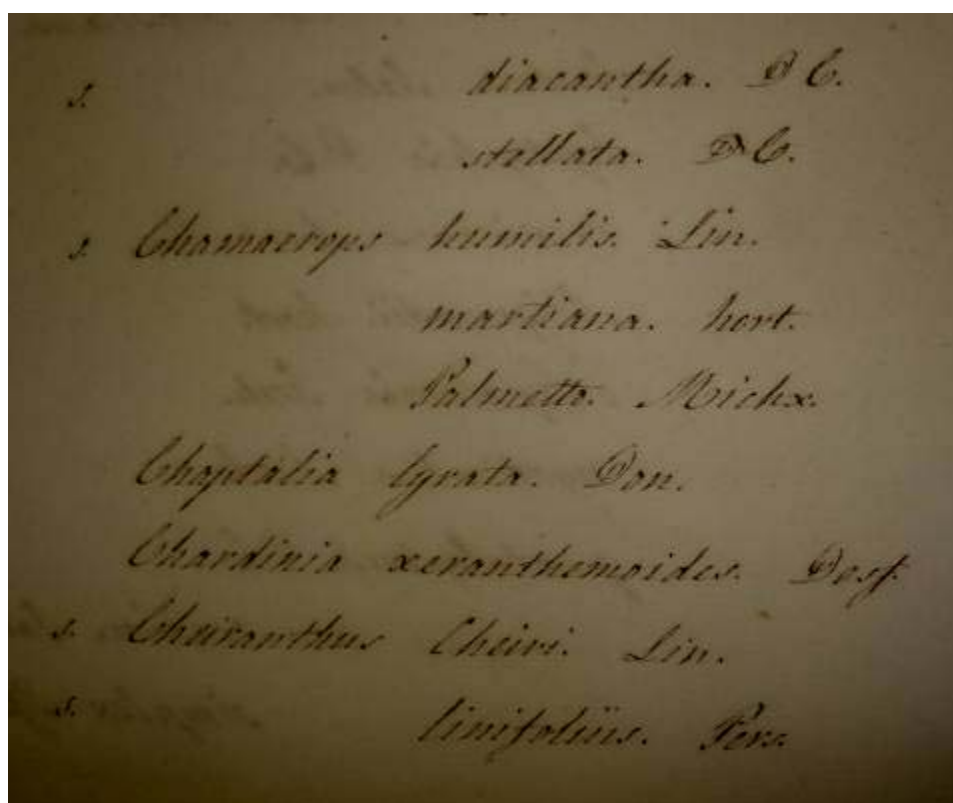 s. diacantha. DC.
stellata. DC.
s. Chamaerops humilis. Lin.
martiana. hort.
Palmetto. Michx.
Chaptalia lyrata. Don.
Chardinia xeranthemoides. Desf.
s. Cheiranthus Cheiri. Lin.
s. linifolius. Pers.